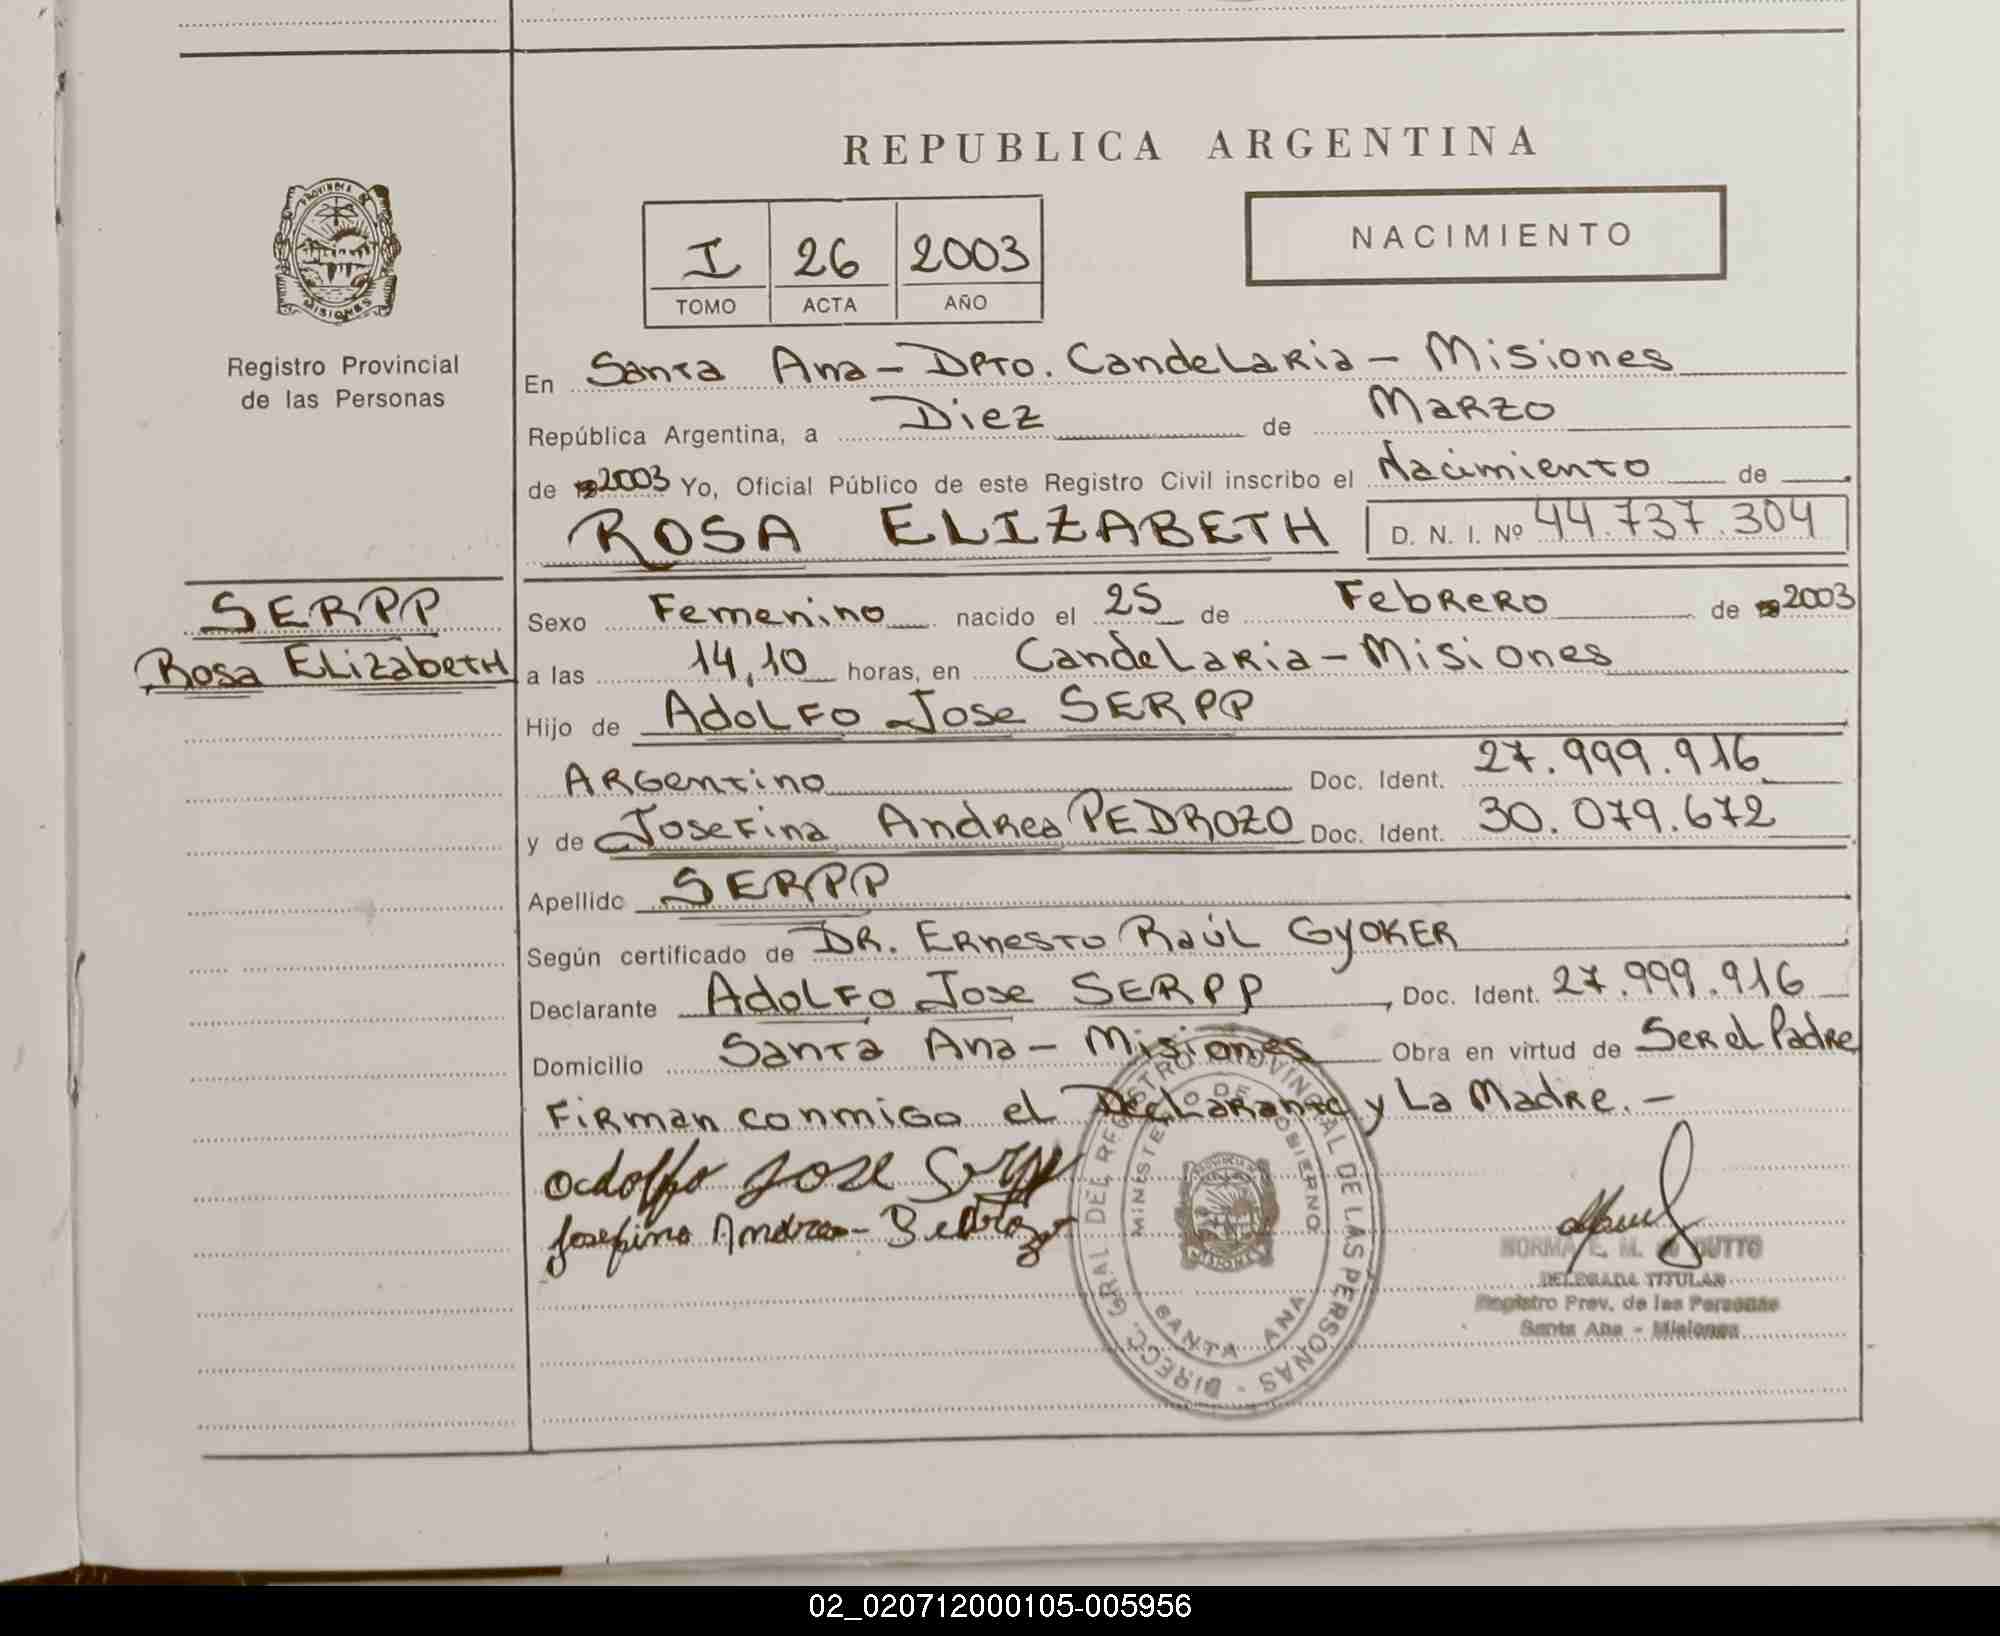 REPUBLICA ARGENTINA
PROVINCIA DE MISIONES
Registro Provincial
de las Personas
I 26 2003
TOMO ACTA AÑO
NACIMIENTO
En Santa Ana - Dpto. Candelaria - Misiones
República Argentina, a Diez de Marzo
de 2003 Yo, Oficial Público de este Registro Civil inscribo el Nacimiento de
ROSA ELIZABETH D. N. I. Nº 44.737.304
SERPP
Rosa Elizabeth
Sexo Femenino nacido el 25 de Febrero de 2003
a las 14,10 horas, en Candelaria - Misiones
Hijo de Adolfo Jose SERPP
Argentino Doc. Ident. 27.999.916
y de Josefina Andrea PEDROZO Doc. Ident. 30.079.672
Apellido SERPP
Según certificado de DR. Ernesto Raúl GYOKER
Declarante Adolfo Jose SERPP, Doc. Ident. 27.999.916
Domicilio Santa Ana - Misiones Obra en virtud de Ser el Padre
Firman conmigo el Declarante y La Madre. -
Adolfo Jose Serpp
Josefina Andrea
DIRECC. GRAL DEL REGISTRO PROVINCIAL DE LAS PERSONAS -
MINISTERIO DE GOBIERNO
PROVINCIA DE MISIONES
SANTA ANA
NORMA E. M. DUTTO
DELEGADA TITULAR
Registro Prov. de las Personas
Santa Ana - Misiones
02_020712000105-005956